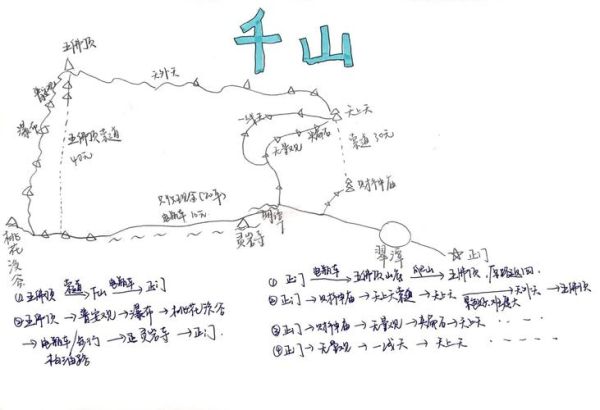 千山
五佛顶
天外天
普安观
瀑布
五佛顶索道
40元
一线天
天上天
夹扁石
无量观
索道30元
财神庙
只收现金(20年)
电瓶车10元
明潭
灵岩寺
翠潭
正门
桃花溪谷
①五佛顶 索道→下山 电瓶车→正门
②五佛顶→普安观→瀑布→桃花溪谷
→电瓶车/步行→灵岩寺→正门.
柏油路
①正门 电瓶车→五佛顶山底 爬山→五佛顶,原路返回.
②正门→财神庙→天上天索道→天上天→天外天→五佛顶
③正门→财神庙→无量观→夹扁石→天上天
④正门→无量观→一线天→天上天